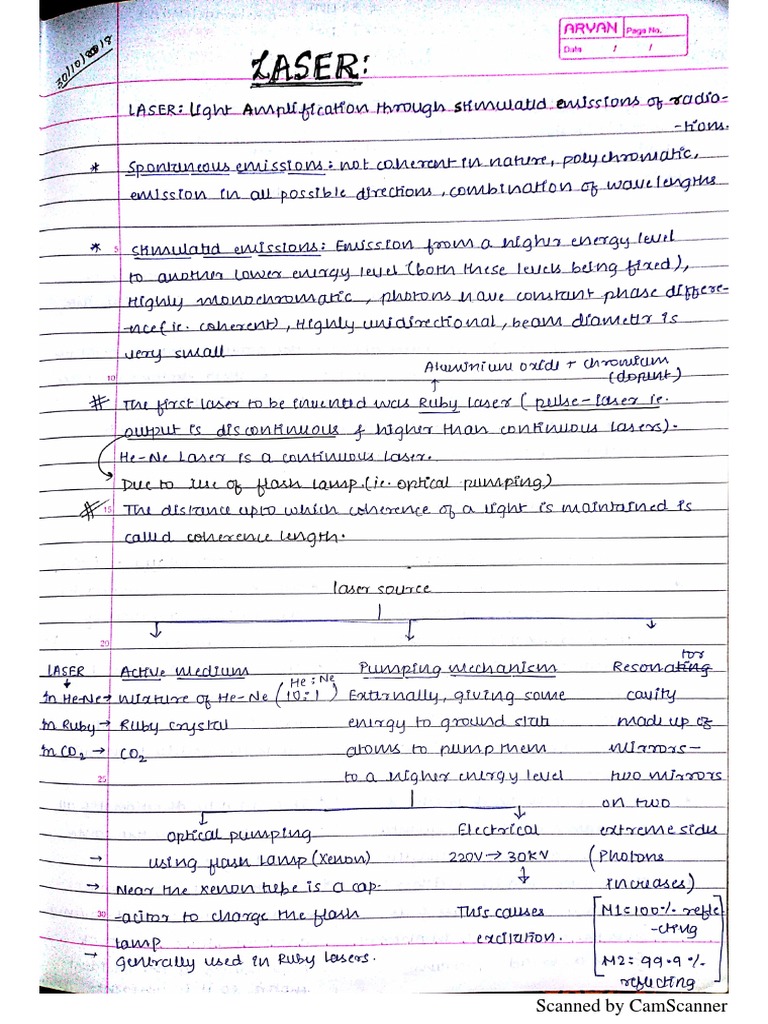 30/10/2018
ARYAN Page No.
Date / /
LASER:
LASER: Light Amplification through stimulated emissions of radia-
-tions.
* Spontaneous emissions: not coherent in nature, polychromatic,
emission in all possible directions, combination of wavelengths
* 5 Stimulated emissions: Emission from a higher energy level
to another lower energy level (both these levels being fixed),
Highly monochromatic, photons have constant phase differe-
-nce (ie. coherent), Highly unidirectional, beam diameter is
very small
Aluminium oxide + chromium
10 (dopent)
# The first laser to be invented was Ruby laser (pulse-laser ie.
output is discontinuous & higher than continuous lasers).
He-Ne Laser is a continuous laser.
Due to use of flash lamp. (ie. optical pumping)
# 15 The distance upto which coherence of a light is maintained is
called coherence length.
laser source
20
LASER Active Medium Pumping Mechanism Resonating tor
in He-Ne → mixture of He-Ne (He:Ne 10:1) Externally, giving some cavity
in Ruby → Ruby crystal energy to ground state made up of
in CO2 → CO2 atoms to pump them mirrors-
25 to a higher energy level two mirrors
on two
optical pumping Electrical extreme sides
→ using flash lamp (Xenon) 220V → 30KV (Photons
→ Near the xenon tube is a cap- increases)
30 -acitor to charge the flash This causes [M1=100% refle
lamp excitation. -cting
→ generally used in Ruby lasers. M2: 99.9%
reflecting]
Scanned by CamScanner